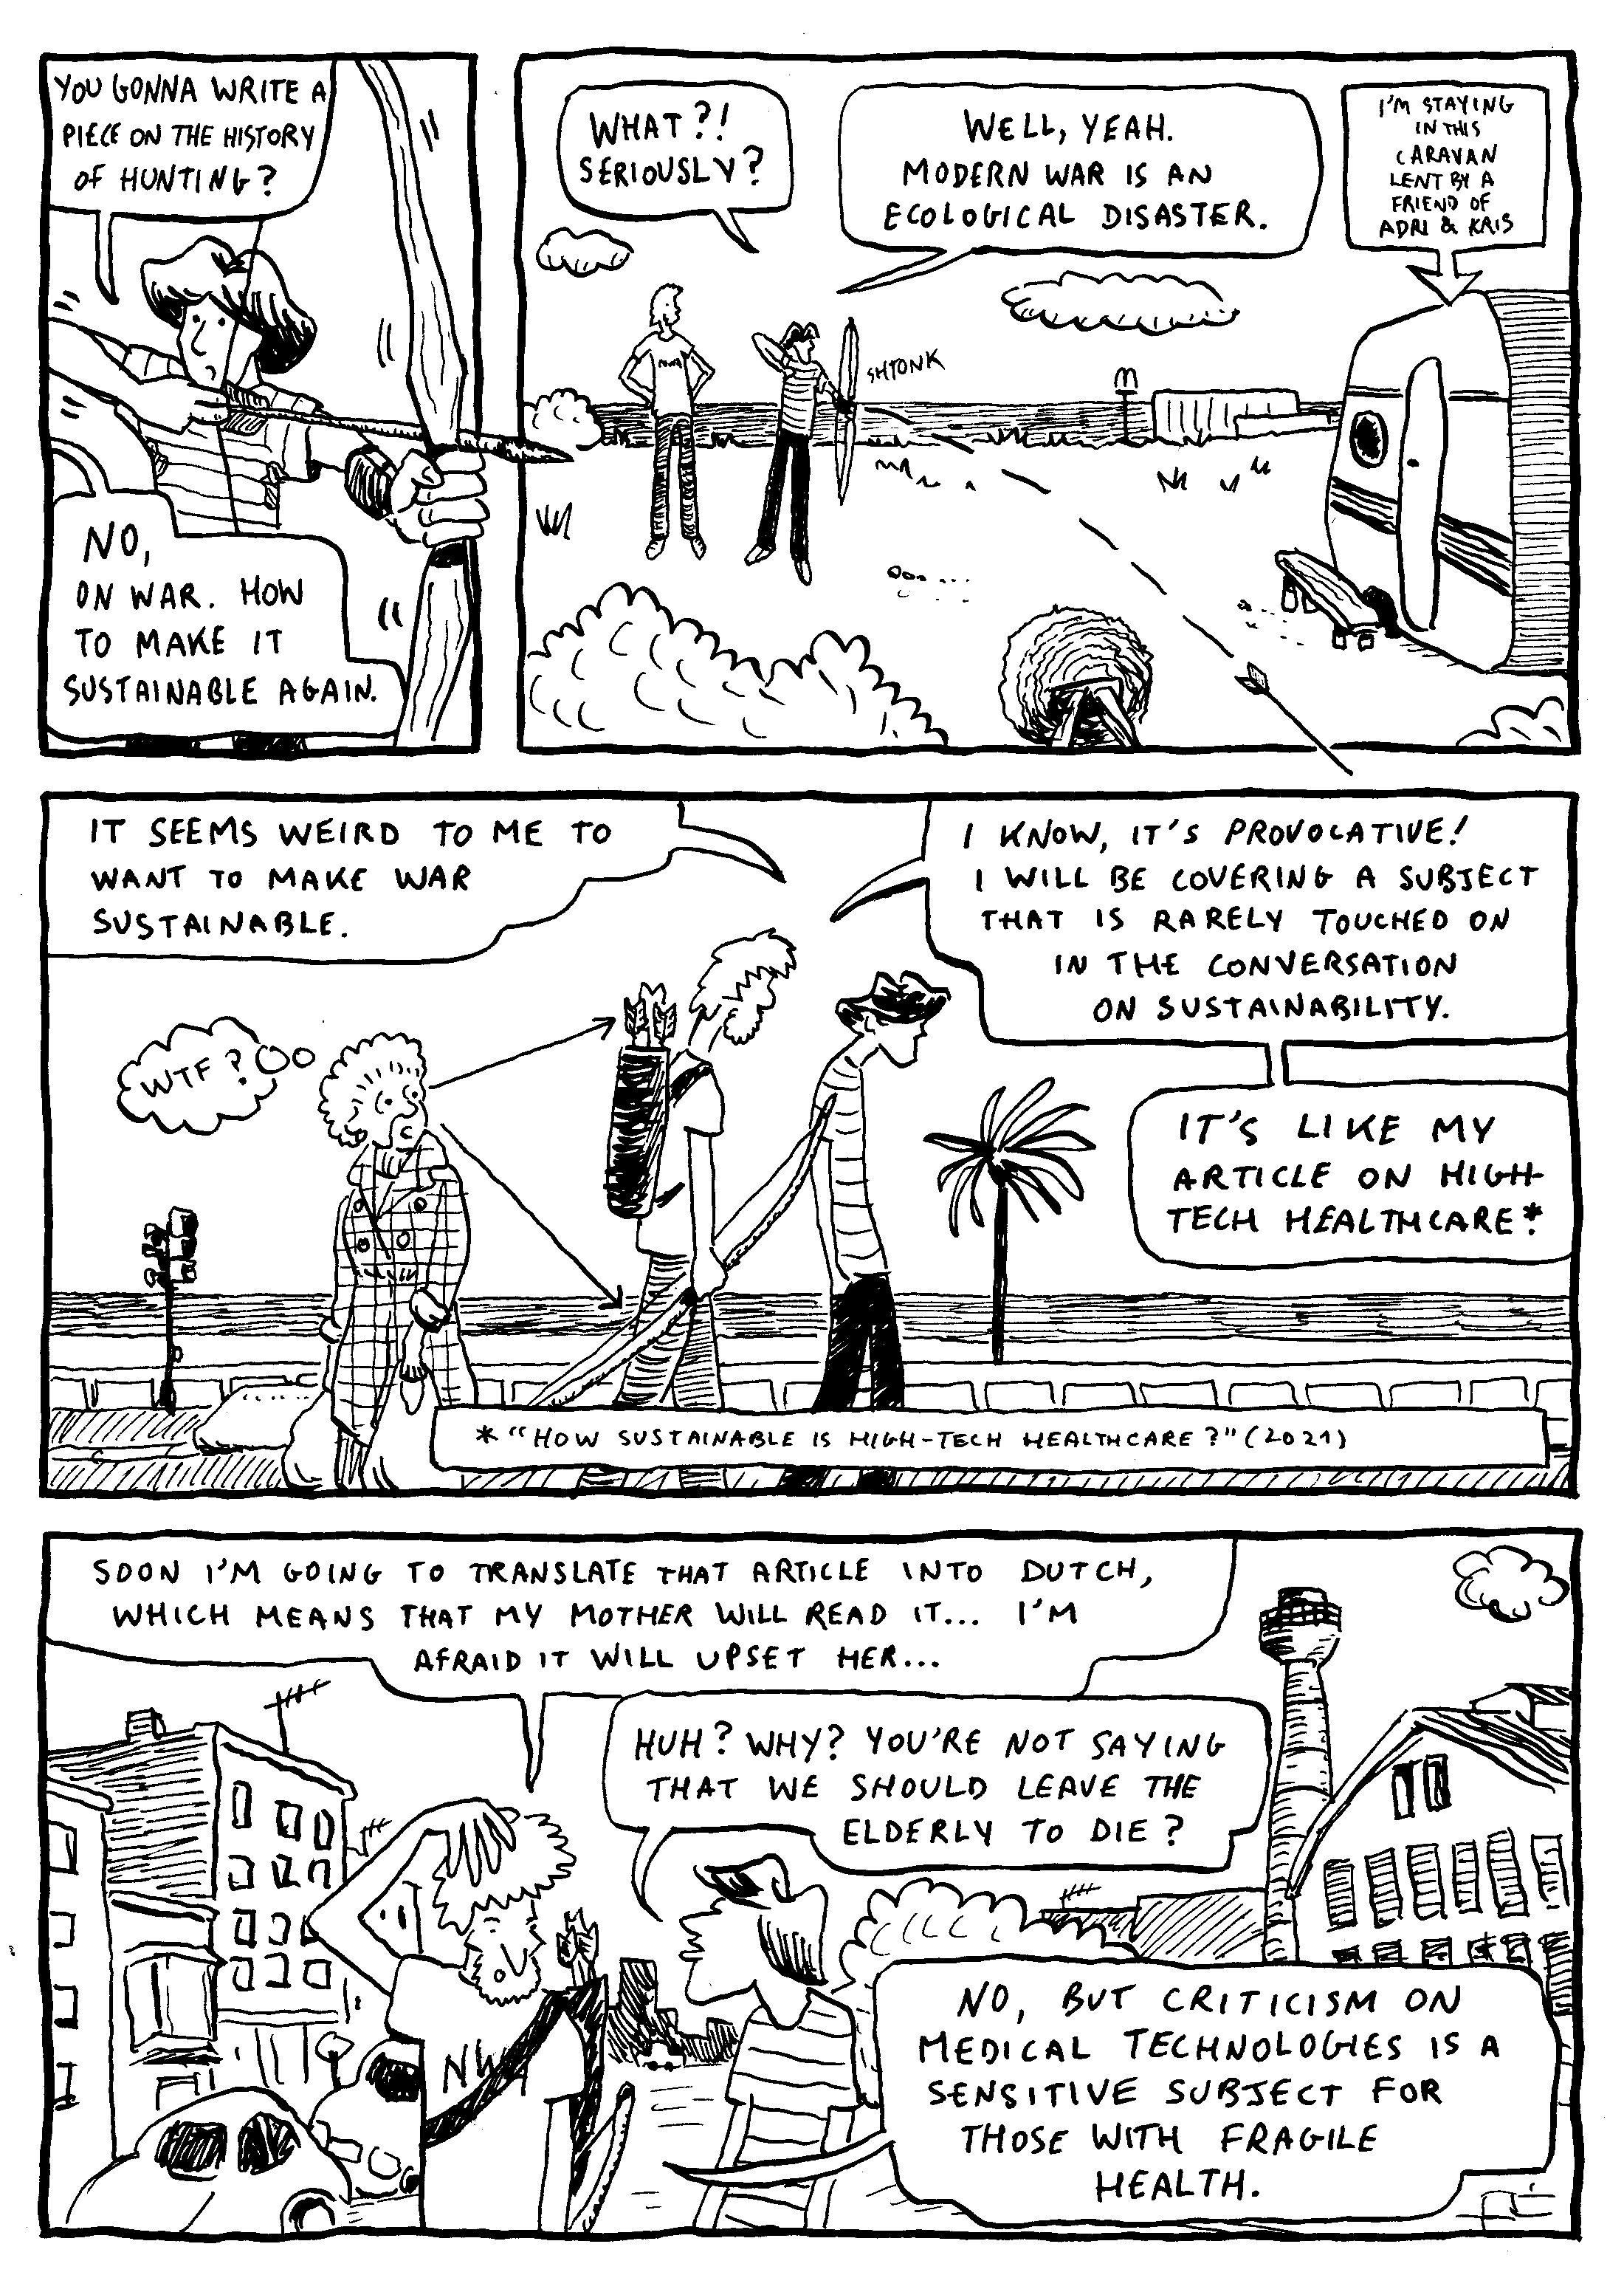 YOU GONNA WRITE A
PIECE ON THE HISTORY
OF HUNTING?
NO,
ON WAR. HOW
TO MAKE IT
SUSTAINABLE AGAIN.
WHAT?!
SERIOUSLY?
WELL, YEAH.
MODERN WAR IS AN
ECOLOGICAL DISASTER.
I'M STAYING
IN THIS
CARAVAN
LENT BY A
FRIEND OF
ADRI & KRIS
SHTONK
IT SEEMS WEIRD TO ME TO
WANT TO MAKE WAR
SUSTAINABLE.
I KNOW, IT'S PROVOCATIVE!
I WILL BE COVERING A SUBJECT
THAT IS RARELY TOUCHED ON
IN THE CONVERSATION
ON SUSTAINABILITY.
WTF?
IT'S LIKE MY
ARTICLE ON HIGH-
TECH HEALTHCARE*
* "HOW SUSTAINABLE IS HIGH-TECH HEALTHCARE?" (2021)
SOON I'M GOING TO TRANSLATE THAT ARTICLE INTO DUTCH,
WHICH MEANS THAT MY MOTHER WILL READ IT... I'M
AFRAID IT WILL UPSET HER...
HUH? WHY? YOU'RE NOT SAYING
THAT WE SHOULD LEAVE THE
ELDERLY TO DIE?
NO, BUT CRITICISM ON
MEDICAL TECHNOLOGIES IS A
SENSITIVE SUBJECT FOR
THOSE WITH FRAGILE
HEALTH.